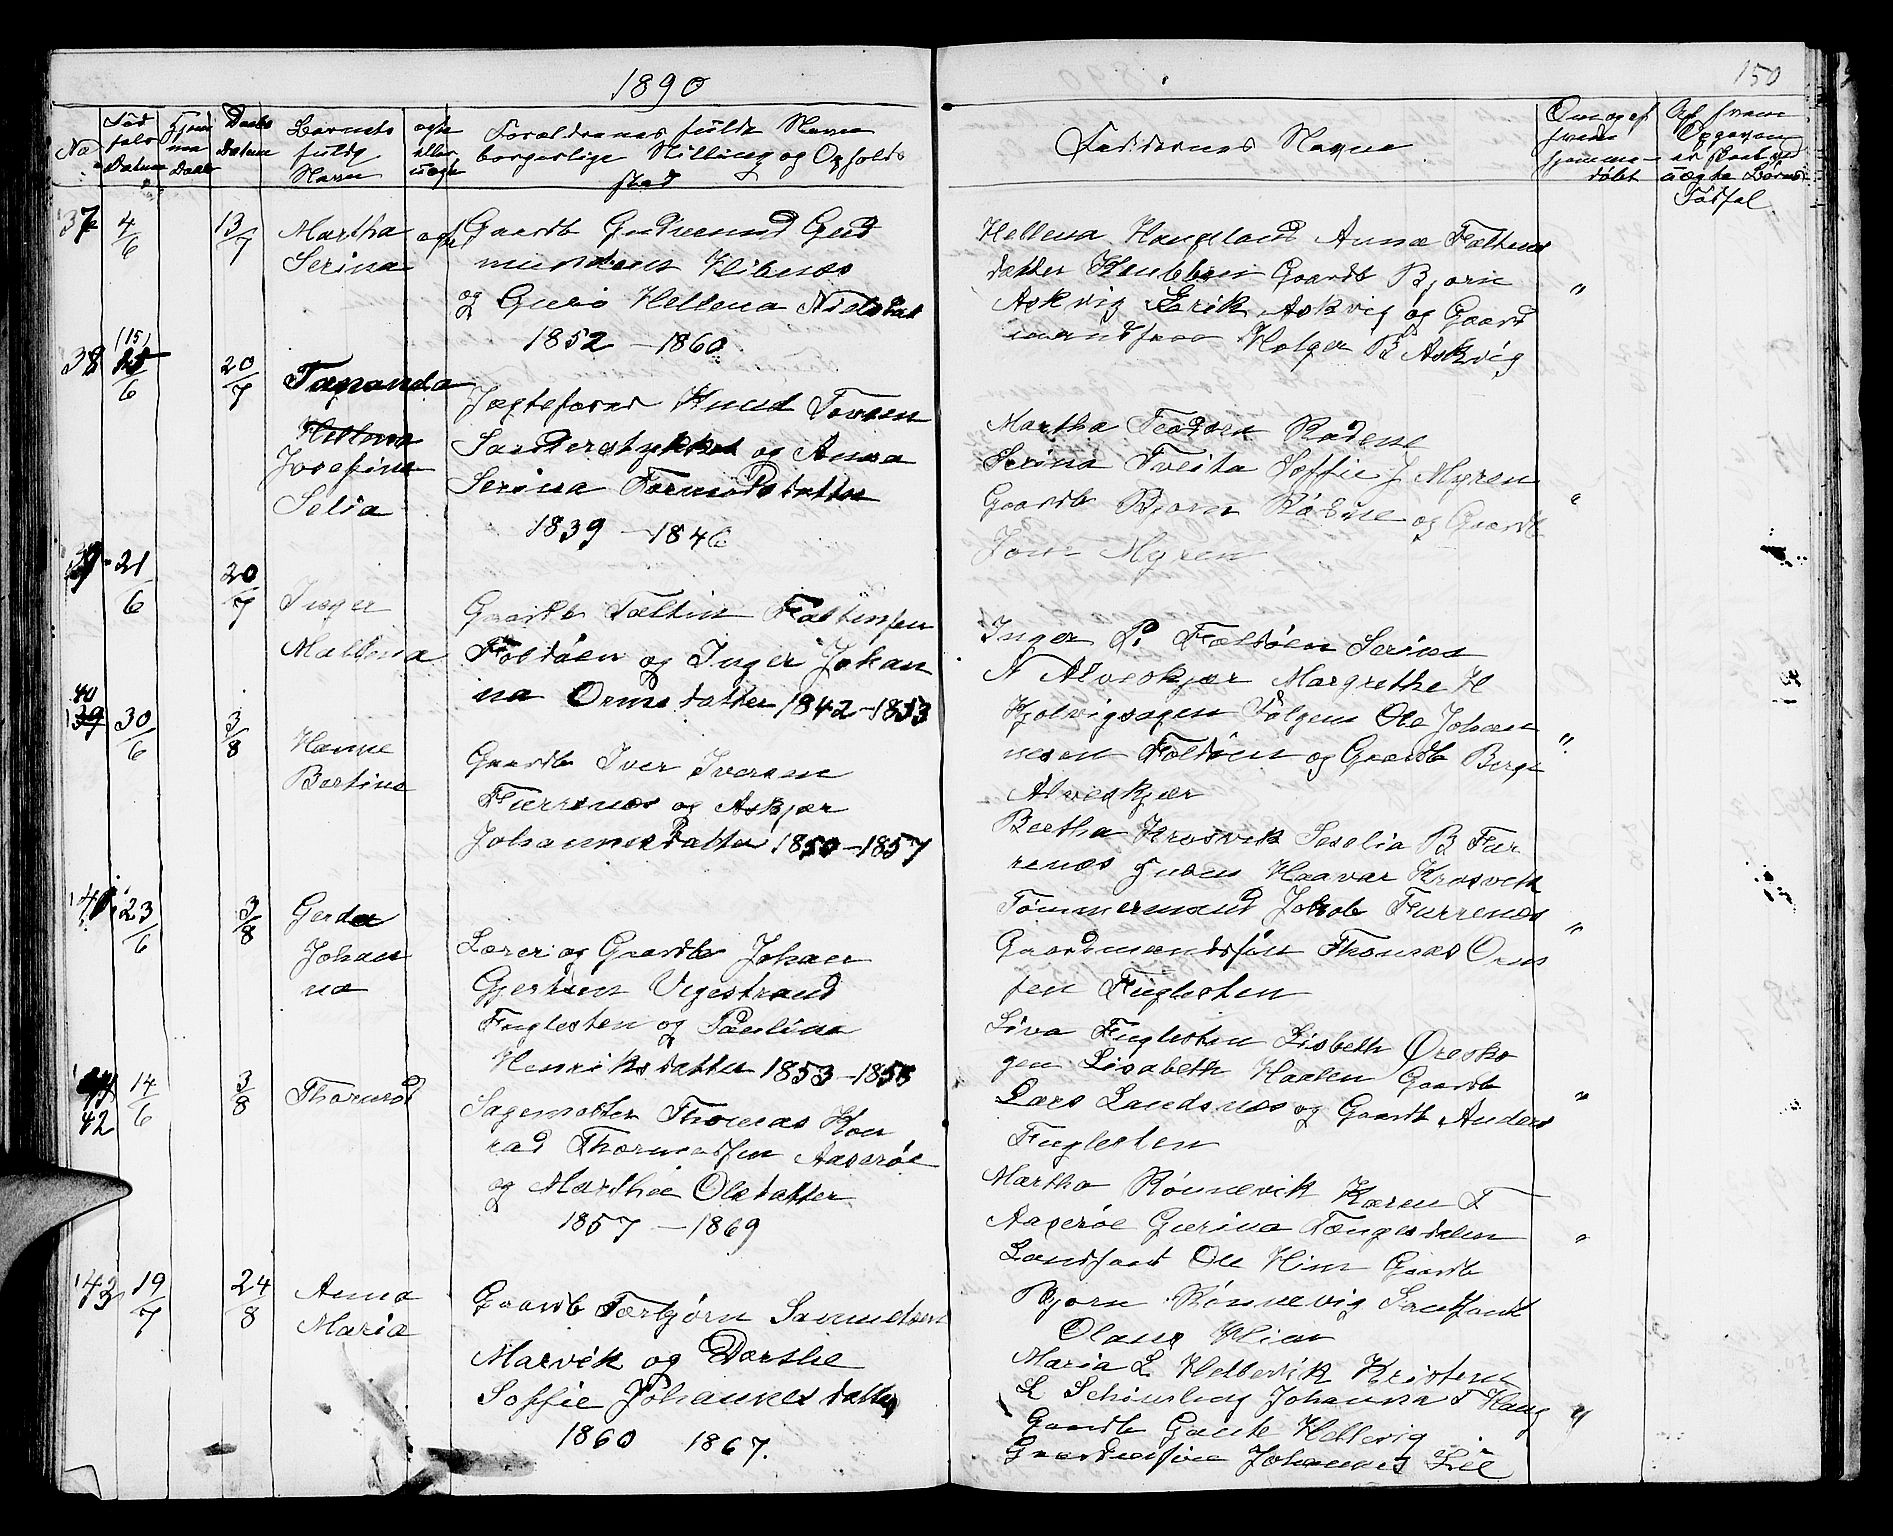 1890
150
No
Fød
fels
Datum
Hjem
ma
Daabs
Datum
Barnets
fulde
Navn
ægte
eller
uægte
Forældrenes fulde Navne
borgerlige Stilling og Opholds
sted
Faddernes Navne
Om og af
hvem
hjemme-
døbt
Af hvem
Opgaven
er skeet ved
uægte Børns
Fødsel.
37
4/6
13/7
Martha
Serina
ægte
Gaardb Gudmund Gud
mundsen
og Guro Hellena Nielsdat
1852 - 1860
Hellena Haugland Anna Faltens
datter Gaardb Bjørn
Askvig Erik Askvig og Gaard
mandsfrue Holger B Askvig
"
38
(15)
15/6
20/7
Hellena
Josefine
Selia
Jægtefører Knud Torsen
Sanderstykket og Anna
Serina Tormodsdatter
1839 - 1846
Martha
Serina Tveita Soffie J Myren
Gaardb Bjørn og Gaardb
Myren
"
39
21/6
20/7
Inger
Mallena
Gaardb Faltin Faltinsen
Foldøen og Inger Johan
na Ormsdatter 1842 - 1853
Inger P. Foldøen Serina
N Alveskjær Margrethe H
Hjelvigsagen Ole Johan
nesen Foldøen og Gaardb Berge
Alveskjær
"
40
139
30/6
3/8
Hanne
Bertine
Gaardb Iver Iversen
Furrenæs og Askjær
Johannesdatter 1850 - 1857
Bertha Krosvik Seselia B Fur
renæs Haavar Krosvik
Tømmermand Jakob Furrenæs
Gaardmandsføn Thomas Orm
sen Fuglesten
"
41
23/6
3/8
Gerda
Johan
na
Lærer og Gaardb Johan
Gjertsen Vigestrand
Fuglesten og Paulina
Henriksdatter 1853 - 1858
Siva Fuglesten Lisbeth Øresko
gen Lisabeth Haalen Gaardb
Lars Landsnæs og Gaardb Anders
Fuglesten
"
42
14/6
3/8
Thormod
Sagemester Thomas Kon
rad Thormodsen Aaserøe
og Marthe Olsdatter
1857 - 1869
Martha Rønnevik Karen T
Aaserøe Gurina Tengesdalen
Ole Him Gaardb
Bjørn Rønnevig
Olaus Him
"
143
19/7
24/8
Anna
Maria
Gaardb Torbjørn Samuelsen
Marvik og Dorthe
Soffie Johannesdatter
1860 1867.
Maria L Hellevik Kristen
L Johanna T Haug
Gaardb Gaute Hellevig
Johannes Lie
"